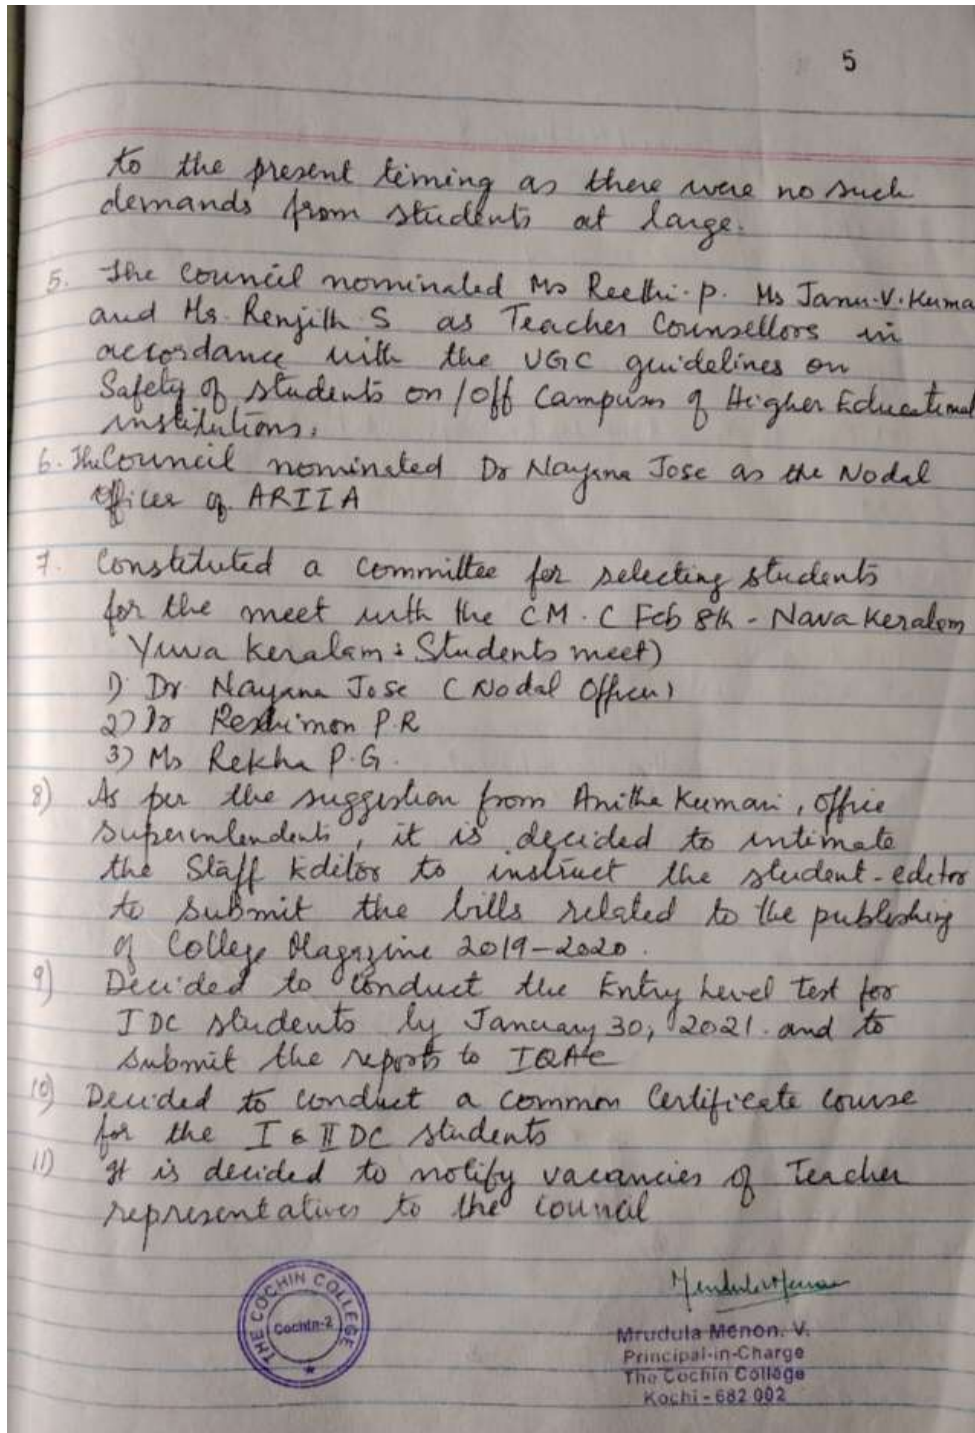 5
to the present timing as there were no such
demands from students at large.
5. The Council nominated Ms Reethi.P. Ms Janu.V.Kuma
and Ms. Renjith S as Teacher Counsellors in
accordance with the UGC guidelines on
Safety of students on/off Campuses of Higher Educational
institutions.
6. The Council nominated Dr Nayana Jose as the Nodal
Officer of ARIIA
7. Constituted a committee for selecting students
for the meet with the CM. ( Feb 8th - Nava Keralam
Yuva Keralam : Students meet)
1) Dr Nayana Jose (Nodal Officer)
2) Dr P.R
3) Ms Rekha P.G.
8) As per the suggestion from Anitha Kumari, office
Superintendent, it is decided to intimate
the Staff Editor to instruct the student-editor
to submit the bills related to the publishing
of College Magazine 2019-2020.
9) Decided to conduct the Entry Level Test for
I DC students by January 30, 2021. and to
submit the reports to IQAC
10) Decided to conduct a common Certificate course
for the I & II DC students
11) It is decided to notify vacancies of Teacher
representatives to the council
THE COCHIN COLLEGE
Cochin-2
Mrudula Menon. V.
Principal-in-Charge
The Cochin College
Kochi - 682 002